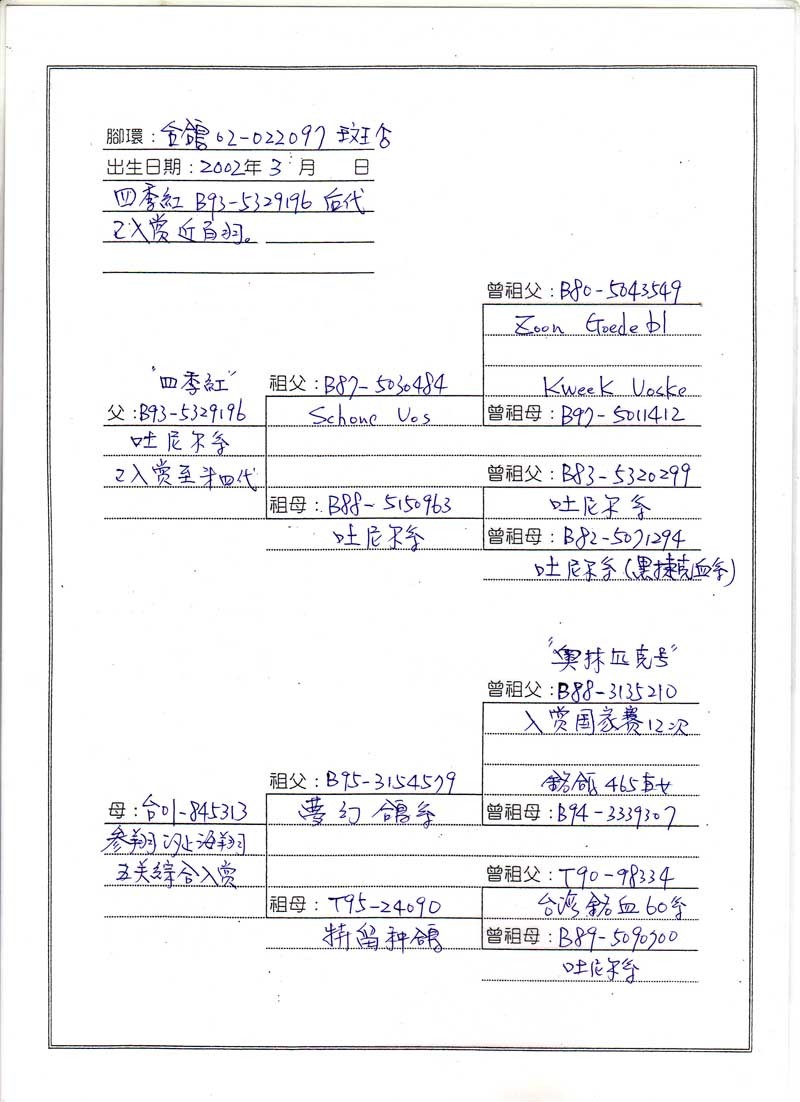 腳環：金鴿02-022097 斑 公
出生日期：2002年 3 月 日
四季紅 B93-5329196 后代
已入赏近百羽。
曾祖父：B80-5043549
Zoon Goede bl
"四季紅"
祖父：B87-5030484
Kweek Voske
父：B93-5329196
Schone Vos
曾祖母：B97-5011412
吐尼尔系
已入赏至半四代
曾祖父：B83-5320299
祖母：B88-5150963
吐尼尔系
吐尼尔系
曾祖母：B82-5071294
吐尼尔系(黑捷克血系)
"奥林匹克号"
曾祖父：B88-3135210
入赏国家赛12次
祖父：B95-3154579
465直女
母：台01-845313
夢幻鴿系
曾祖母：B94-3339307
参翔 海翔
五关綜合入赏
曾祖父：T90-98334
祖母：T95-24090
台湾 血60系
特留种鴿
曾祖母：B89-5090700
吐尼尔系